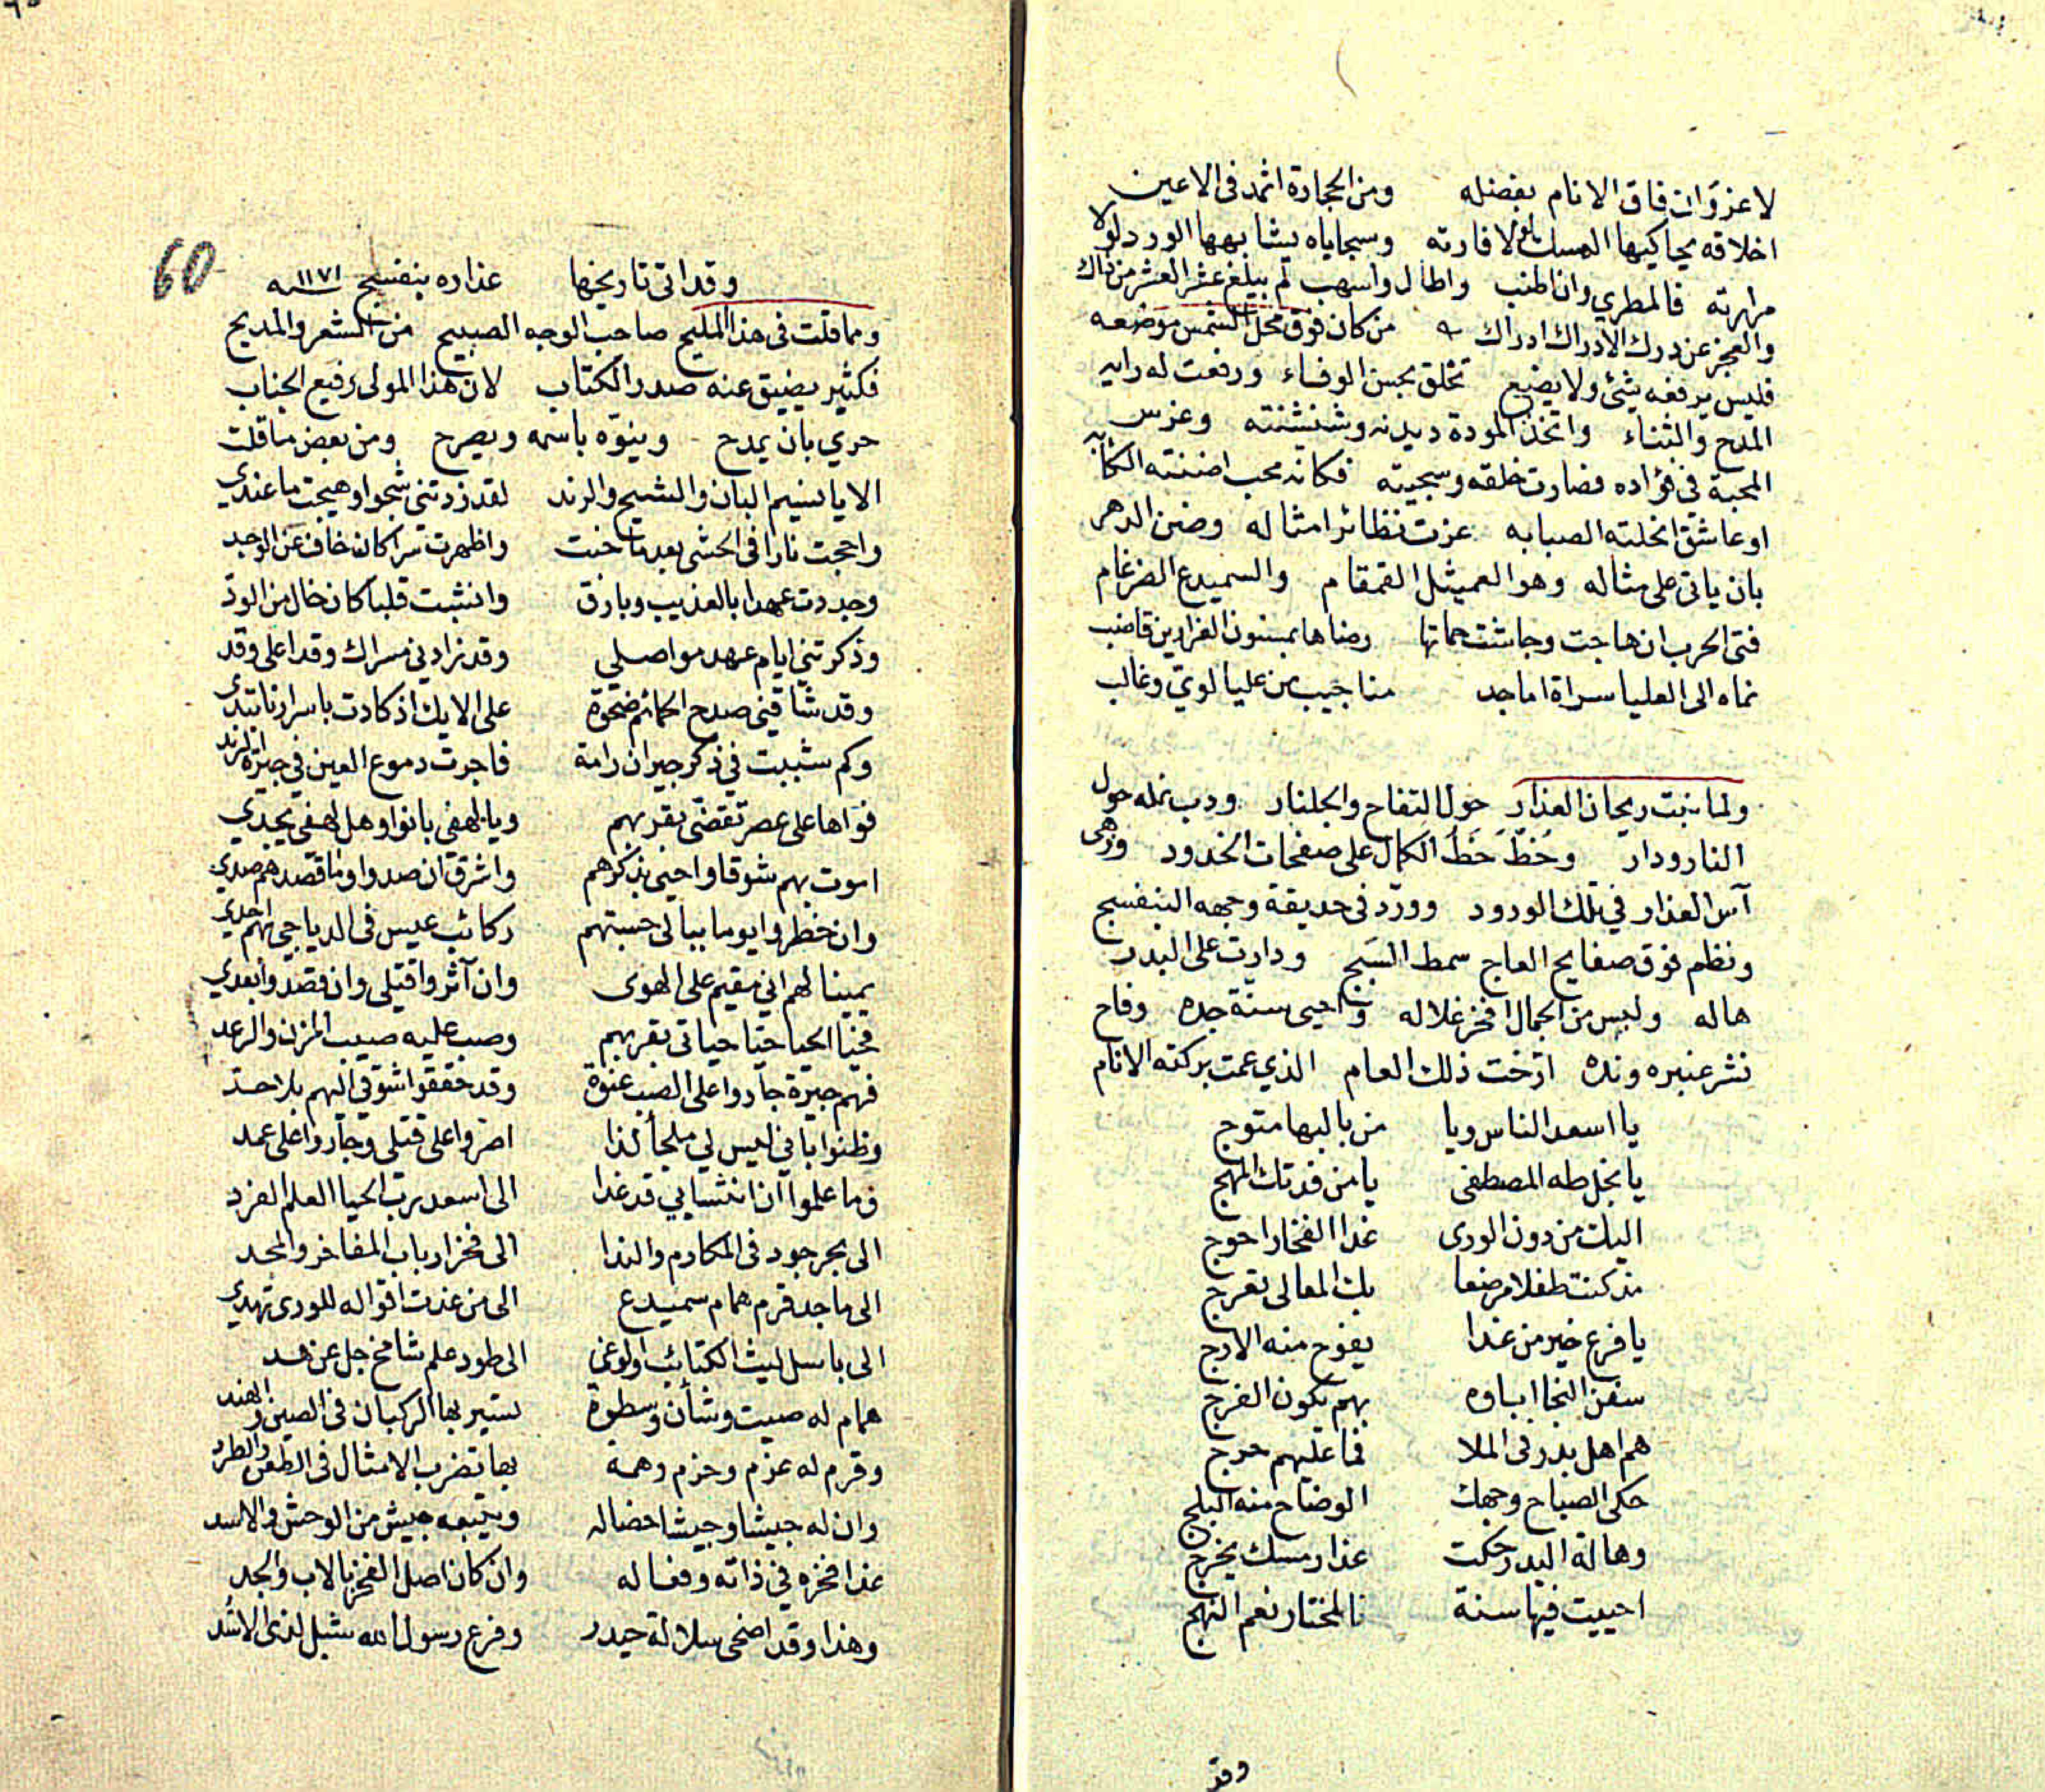 لا غزو ان فاق الانام بفضله ومن الحجارة اثمد فى الاعين
اخلاقه يحاكيها المسك لولا فارته وسجاياه يشابهها الورد لولا
مرارته فالمطري وان اطنب واطال واسهب لم يبلغ عشر العشر من ذاك
والعجز عن درك الادراك ادراك من كان فوق محل الشمس موضعه
فليس يرفعه شئ ولا يضيع تخلق بحسن الوفاء ورفعت له راية
المدح والثناء واتخذ المودة ديدنه وشنشنته وغرس
المحبة في فؤاده فصارت خلقه وسجيته فكانه محب اضننته الكآبه
او عاشق انحلته الصبابه عزت نظائر امثاله وضن الدهر
بان ياتى على مثاله وهو العميثل القمقام والسميدع الضرغام
فتى الحرب ان هاجت وجاشت حماتها رضاها بمسنون الغرارين قاضب
نماه الى العليا سراة اماجد مناجيب من عليا لوي وغالب
ولما نبت ريحان العذار حول التفاح والجلنار ودب نمله حول
النار ودار وخط خط الكمال على صفحات الخدود وزهى
آس العذار في تلك الورود وورد فى حديقة وجهه البنفسج
ونظم فوق صفايح العاج سمط السبج ودارت على البدر
هاله ولبس من الجمال افخر غلاله واحيى سنة جده وفاح
نشر عنبره ونده ارخت ذلك العام الذي عمت بركته الانام
يا اسعد الناس ويا من بالبها متوج
يا نجل طه المصطفى يا من فدتك المهج
اليك من دون الورى غدا الفخار احوج
مذ كنت طفلا مرضعا بك المعالى تعرج
يا فرع خير من غدا يفوح منه الارج
سفن النجا اباوه بهم يكون الفرج
هم اهل بدر فى الملا فما عليهم حرج
حكى الصباح وجهك الوضاح منه البلج
وهالة البدر حكت عذار مسك يخرج
احييت فيها سنة المختار نعم النهج
وقد
60
وقد اتى تاريخها عذاره بنفسج ١١٧١ سنه
ومما قلت فى هذا المليح صاحب الوجه الصبيح من الشعر والمديح
فكثير يضيق عنه صدر الكتاب لان هذا المولى رفيع الجناب
حري بان يمدح وينوه باسمه ويصرح ومن بعض ما قلت
الا يا نسيم البان والشيح والرند لقد زدتني شجوا وهيجت ما عندي
واججت نارا فى الحشى بعد ما خبت واظهرت سرا كان خاف عن الوجد
وجددت عهدا بالعذيب وبارق وانشبت قلبا كان خال من الود
وذكرتني ايام عهد مواصلي وقد زادني مسراك وقدا على وقد
وقد شاقني صدح الحمائم ضحوة على الايك اذ كادت باسرارنا تبدى
وكم شببت في ذكر جيران رامة فاجرت دموع العين في جيرة الرند
فواها على عصر تقضى بقربهم ويا لهفي بانوا وهل لهفي يجدي
اموت بهم شوقا واحيى بذكرهم واشرق ان صدوا وما قصدهم صدي
وان خطروا يوما ببالى حسبتهم ركائب عيس فى الدياجي بهم احدي
يمينا لهم اني مقيم على الهوى وان آثروا قتلى وان قصدوا بعدي
فحيا الحيا حيا حياتى بقربهم وصب عليه صيب المزن والرعد
فهم جيرة جاروا على الصب عنوة وقد حققوا شوقي اليهم بلا حد
وظنوا باني ليس لي ملجأ لذا اصروا على قتلى وجاروا على عمد
وما علموا ان انتسابي قد غدا الى اسعد رب الحيا العلم الفرد
الى بحر جود فى المكارم والندا الى فخر ارباب المفاخر والمجد
الى ماجد قرم همام سميدع الى من غدت اقواله للورى تهدي
الى باسل ليث الكتائب والوغى الى طود علم شامخ جل عن هد
همام له صيت وشأن وسطوة تسير بها الركبان فى الصين والهند
وقرم له عزم وحزم وهمة بها تضرب الامثال فى الطعن والطرد
وان له جيشا وجيشا خضاله ويتبعه جيش من الوحش والاسد
غدا فخره في ذاته وفعاله وان كان اصل الفخر بالاب والجد
وهذا وقد اضحى سلالة حيدر وفرع رسول الله شبل لذى الاسد